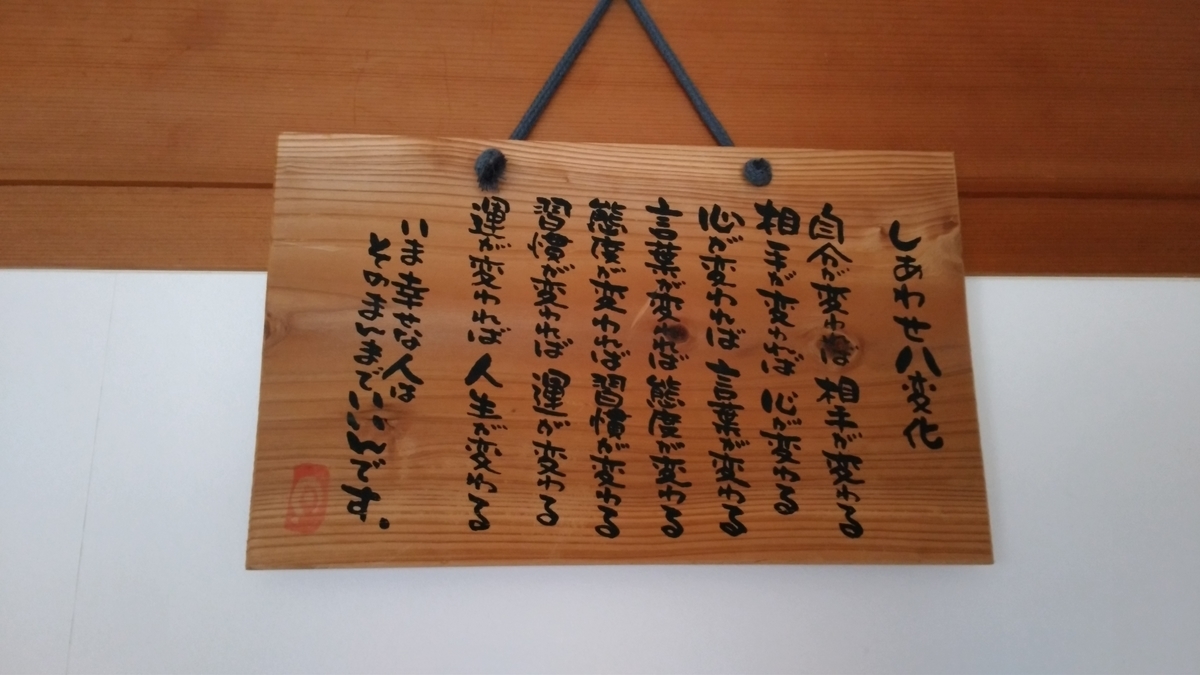 しあわせ八変化
自分が変われば 相手が変わる
相手が変われば 心が変わる
心が変われば 言葉が変わる
言葉が変われば 態度が変わる
態度が変われば 習慣が変わる
習慣が変われば 運が変わる
運が変われば 人生が変わる
いま幸せな人は
そのまんまでいいんです。